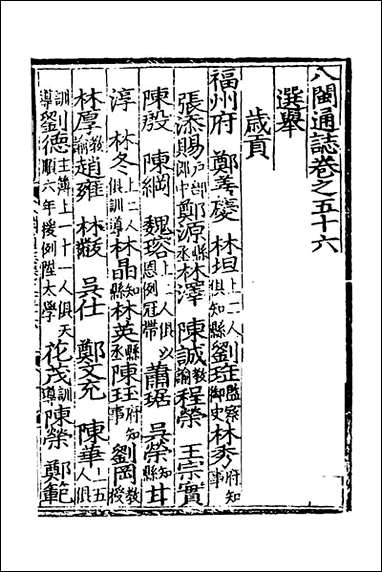 八閩通誌卷之五十六
選舉
歲貢
福州府 鄭善慶 林坦上二人俱知縣劉玨監察御史林秀府知事
張添賜戶部郎中鄭源縣丞林澤 陳誠教諭程榮 王宗實
陳殷 陳綱 魏瑢上二人俱以恩例冠帶 蕭琚 吳榮知縣 甘
淳 林冬上二人俱訓導林晶知縣林英縣丞陳玨府知事劉岡教授
林厚教諭趙雍 林𣀈 吳仕 鄭文充 陳華上五人俱
訓導劉德主簿上一十一人俱天順六年援例陞太學 花茂訓導陳榮 鄭範